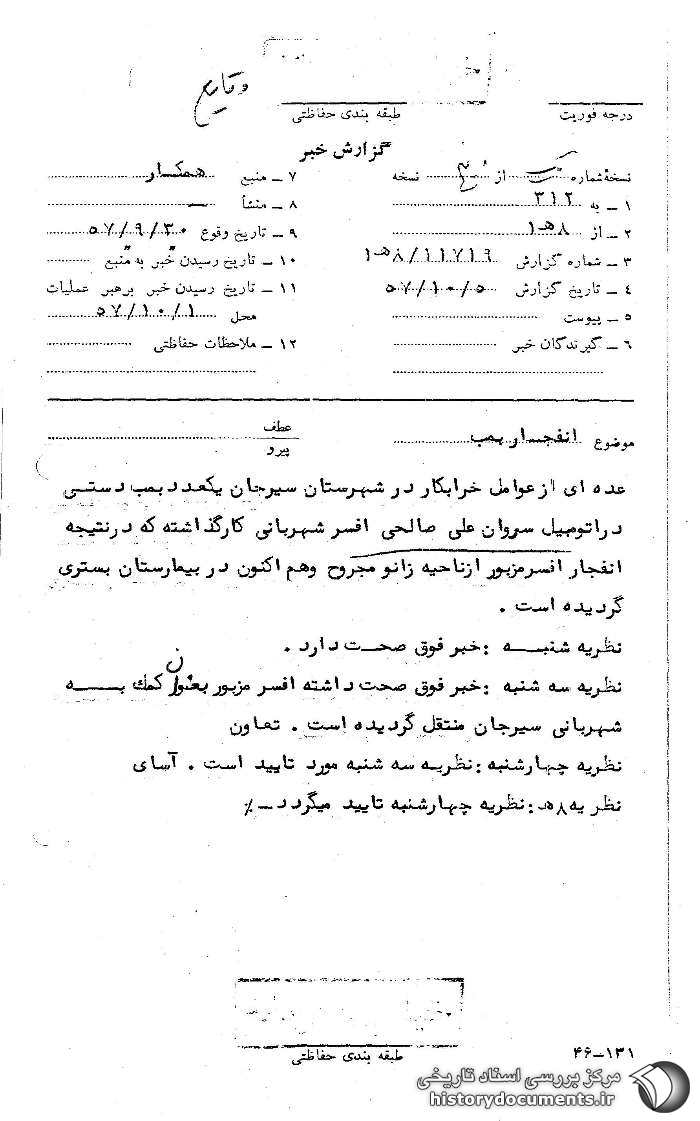 وقایع
درجه فوریت
طبقه بندی حفاظتی
گزارش خبر
نسخهٔ شماره یک از نسخه
۱ ــ به ۳۱۲
۲ ــ از ۸هـ۱
۳ ــ شماره گزارش ۸/۱۱۷۱۹هـ۱
۴ ــ تاریخ گزارش ۵۷/۱۰/۵
۵ ــ پیوست
۶ ــ گیرندگان خبر
۷ ــ منبع همکار
۸ ــ منشأ ــ
۹ ــ تاریخ وقوع ۵۷/۹/۳۰
۱۰ ــ تاریخ رسیدن خبر به منبع " "
۱۱ ــ تاریخ رسیدن خبر برهبر عملیات
محل ۵۷/۱۰/۱
۱۲ ــ ملاحظات حفاظتی
موضوع انفجار بمب
عطف
پیرو
عده ای از عوامل خرابکار در شهرستان سیرجان یکعدد بمب دستی
در اتومبیل سروان علی صالحی افسر شهربانی کارگذاشته که در نتیجه
انفجار افسر مزبور از ناحیه زانو مجروح وهم اکنون در بیمارستان بستری
گردیده است .
نظریه شنبه : خبر فوق صحت دارد .
نظریه سه شنبه : خبر فوق صحت داشته افسر مزبور بعنوان کمک به
شهربانی سیرجان منتقل گردیده است . تعاون
نظریه چهارشنبه : نظریه سه شنبه مورد تایید است . آسای
نظریه ۸هـ : نظریه چهارشنبه تایید میگردد ــ٪
طبقه بندی حفاظتی
۴۶-۱۳۱
مرکز بررسی اسناد تاریخی
historydocuments.ir